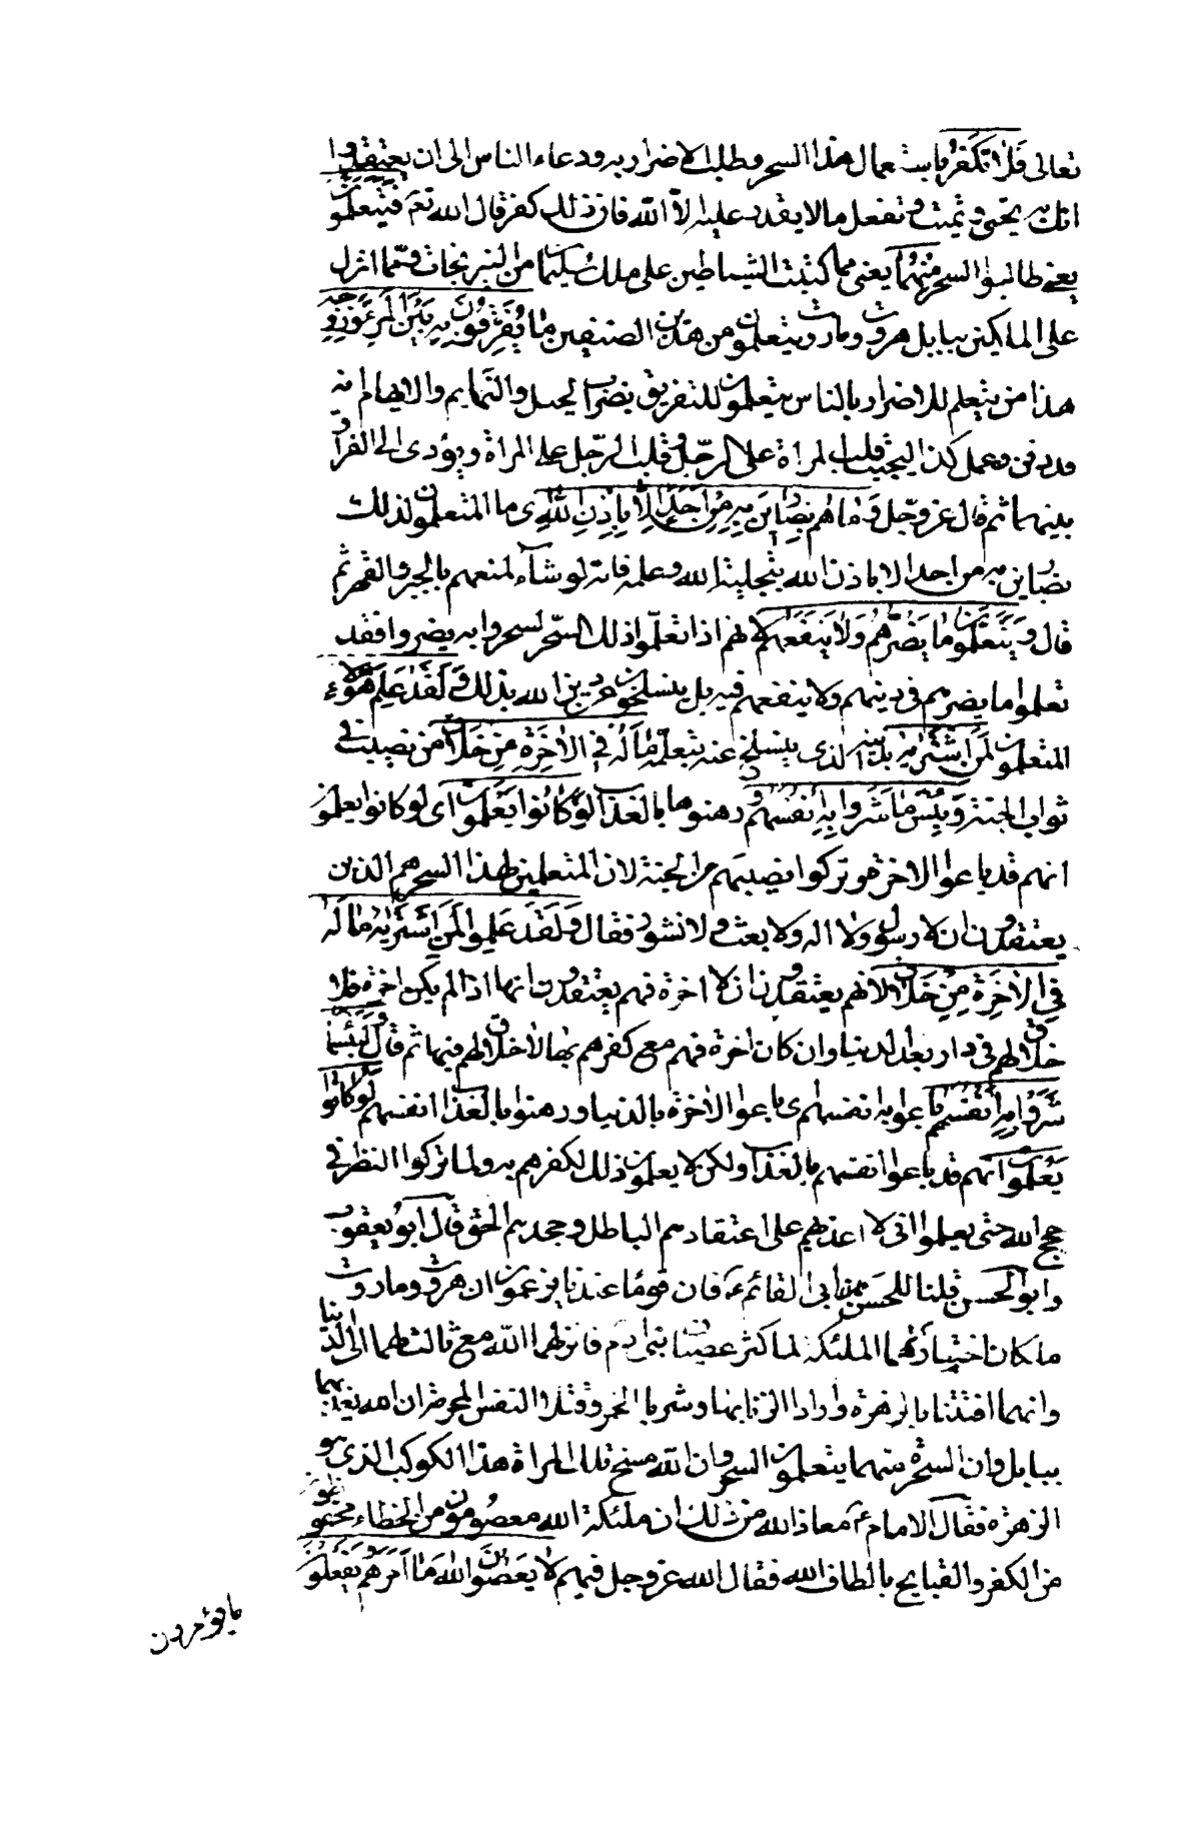 تعالى فَلَا تَكْفُرْ باستعمال هذا السحر وطلب الاضرار به ودعاء الناس الى ان يعتقدوا
انك به تحيى وتميت وتفعل ما لا يقدر عليه الّا اللّه فان ذلك كفر قال الله تعَ فَيَتَعَلَّمُونَ
يعنى طالبوا السحر مِنْهُمَا يعنى مما كتبت الشياطين على ملك سُلَيْمان من النيرنجات وممّا انزل
على الملكين ببابل هروت وماروت يتعلمون من هذين الصنفين مَا يُفَرِّقُونَ بِهِ بَيْنَ الْمَرْءِ وَزَوْجِهِ
هذا من يتعلم للاضرار بالناس يتعلمون للتفريق بضروب الحيل والتمايم والايهام انه
قد دفن وعمل كذا ليحبب قلب المراة على الرّجل وقلب الرّجل على المراة ويؤدى الى الفراق
بينهما ثم قال عز وجّل وَمَا هُمْ بِضَارِّينَ بِهِ مِنْ أَحَدٍ إِلَّا بِإِذْنِ اللَّهِ اى ما المتعلمون لذلك
بضارين به من احد الا باذن الله بتخلية الله وعلمه فانه لو شاء لمنعهم بالجبر والقهر ثم
قال وَيَتَعَلَّمُونَ مَا يَضُرُّهُمْ وَلَا يَنْفَعُهُمْ لانهم اذا تعلّموا ذلك السّحر ليسحروا به ويضروا فقد
تعلموا ما يضرهم فى دينهم ولا ينفعهم فيه بل ينسلخون عن دين الله بذلك وَلَقَدْ عَلِمَ هؤلاء
المتعلمون لَمَنِ اشْتَرَاهُ بدينه الذى ينسلخ عنه بتعلّمه مَا لَهُ فِي الْآخِرَةِ مِنْ خَلَاقٍ من نصيب فى
ثواب الجنة وَلَبِئْسَ مَا شَرَوْا بِهِ أَنْفُسَهُمْ ورهنوها بالعذاب لَوْ كَانُوا يَعْلَمُونَ اى لو كانوا يعلمون
انهم قد باعوا الاخرة وتركوا نصيبهم من الجنة لان المتعلمين لهذا السحر هم الذين
يعتقدون ان لا رسول ولا اله ولا بعث ولا نشور فقال وَلَقَدْ عَلِمُوا لَمَنِ اشْتَرَاهُ مَا لَهُ
فِي الْآخِرَةِ مِنْ خَلَاقٍ لانهم يعتقدون ان لا اخرة فهم يعتقدون انها اذا لم يكن اخرة فلا
خلاق لهم فى دار بعد الدنيا وان كان اخرة فهم مع كفرهم بها لا خلاق لهم فيها ثم قال وَلَبِئْسَ مَا
شَرَوْا بِهِ أَنْفُسَهُمْ باعوا به انفسهم اى باعوا الاخرة بالدنيا ورهنوا بالعذاب انفسهم لَوْ كَانُوا
يَعْلَمُونَ انهم قد باعوا انفسهم بالعذاب ولكن لا يعلمون ذلك لكفرهم به ولما تركوا النظر فى
حجج الله حتى يعلموا انى لا اعذبهم على اعتقادهم الباطل وجحدهم الحق قال ابو يعقوب
وابو الحسن قلنا للحسن ابى القائم عَ فان قومًا عندنا يزعمون ان هروت وماروت
ملكان اختارتهما الملئكة لما كثر عصيان بنى ادم فانزلهما اللّه مع ثالث لهما الى الدنيا
وانهما افتتنا بالزهرة وارادا الزنا بها وشربا الخمر وقتلا النفس المحرمة وان الله يعذبهما
ببابل وان السحرة منهما يتعلمون السحر وان اللّه مسخ تلك المراة هذا الكوكب الذى هو
الزهرة فقال الامام عَ معاذ الله من ذلك ان ملئكة الله معصومون من الخطاء محفوظون
من الكفر والقبايح بالطاف الله فقال الله عز وجل فيهم لَا يَعْصُونَ اللّهَ مَا أَمَرَهُمْ وَيَفْعَلُونَ
ما يؤمرون